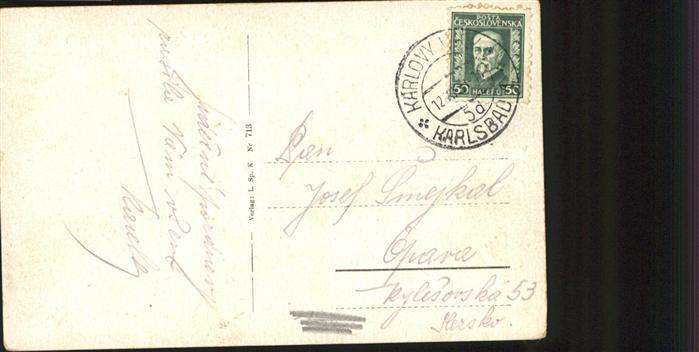 POŠTA
ČESKOSLOVENSKÁ
50 HALÉŘŮ 50
KARLOVY
12.
5d
KARLSBAD
Verlag: L. Sp. K. Nr 713
Pan
Josef Smejkal
Opava
Kylešovská 53
Slezsko.
Srdečné pozdravy
Vám